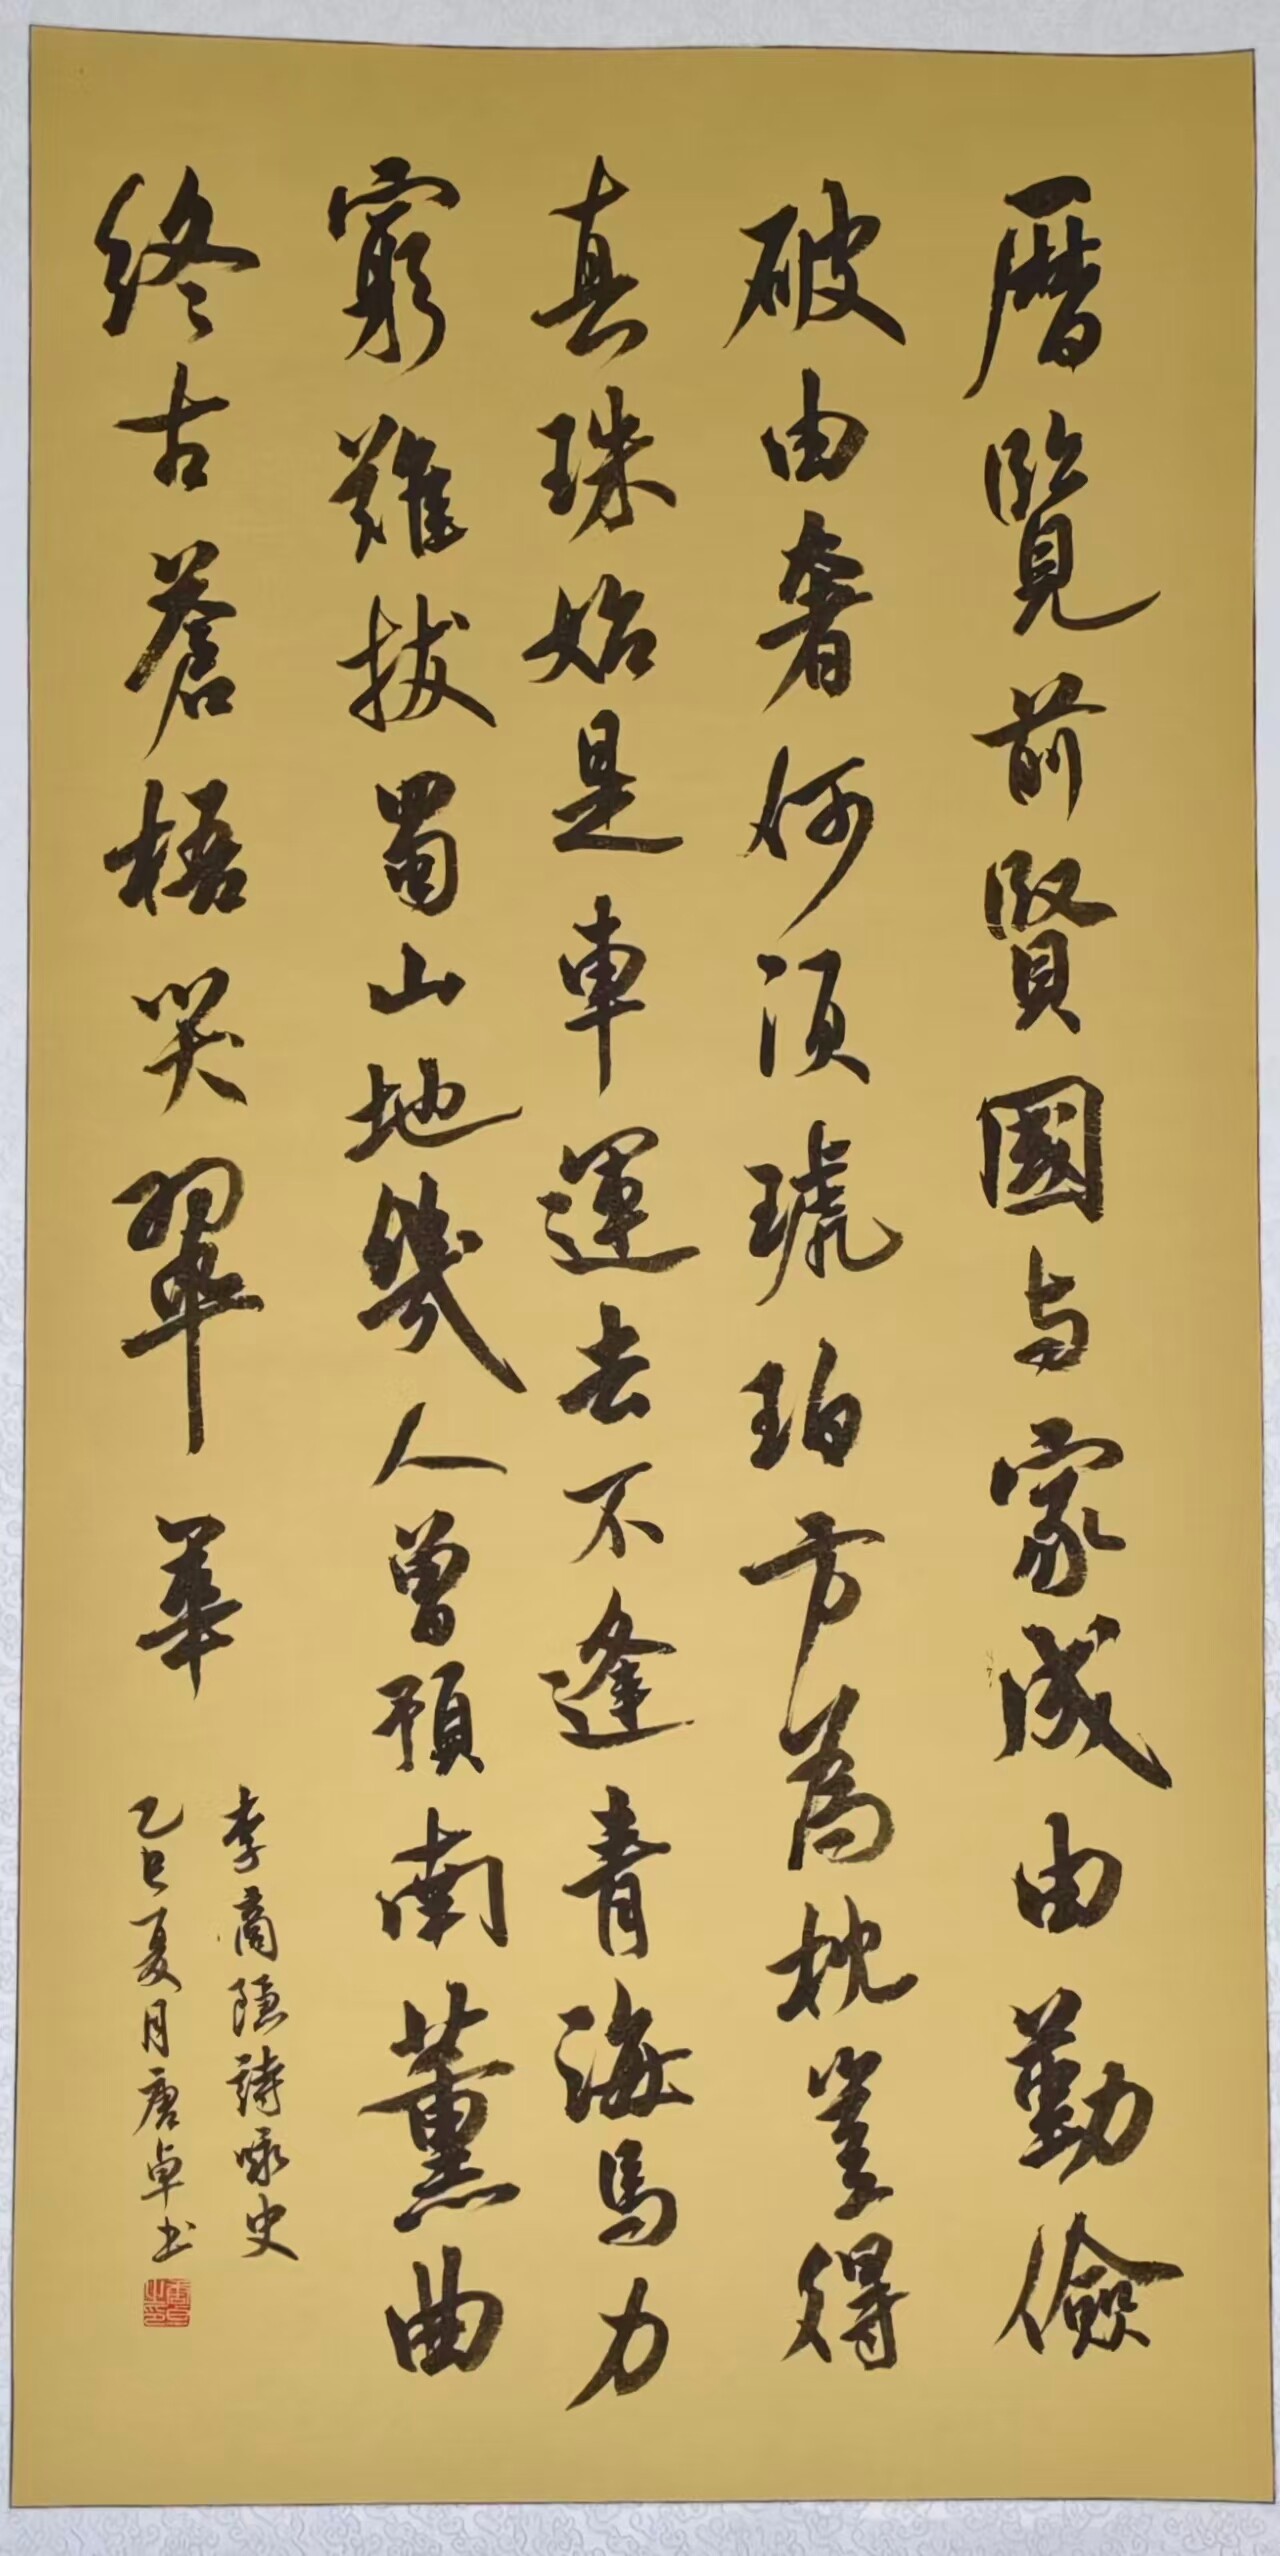 厯覽前賢國与家成由勤儉
破由奢何須琥珀方為枕豈得
真珠始是車運去不逢青海馬力
窮難拔蜀山地幾人曾預南薰曲
終古蒼梧哭翠華
李商隱詩咏史
乙巳夏月唐卓书